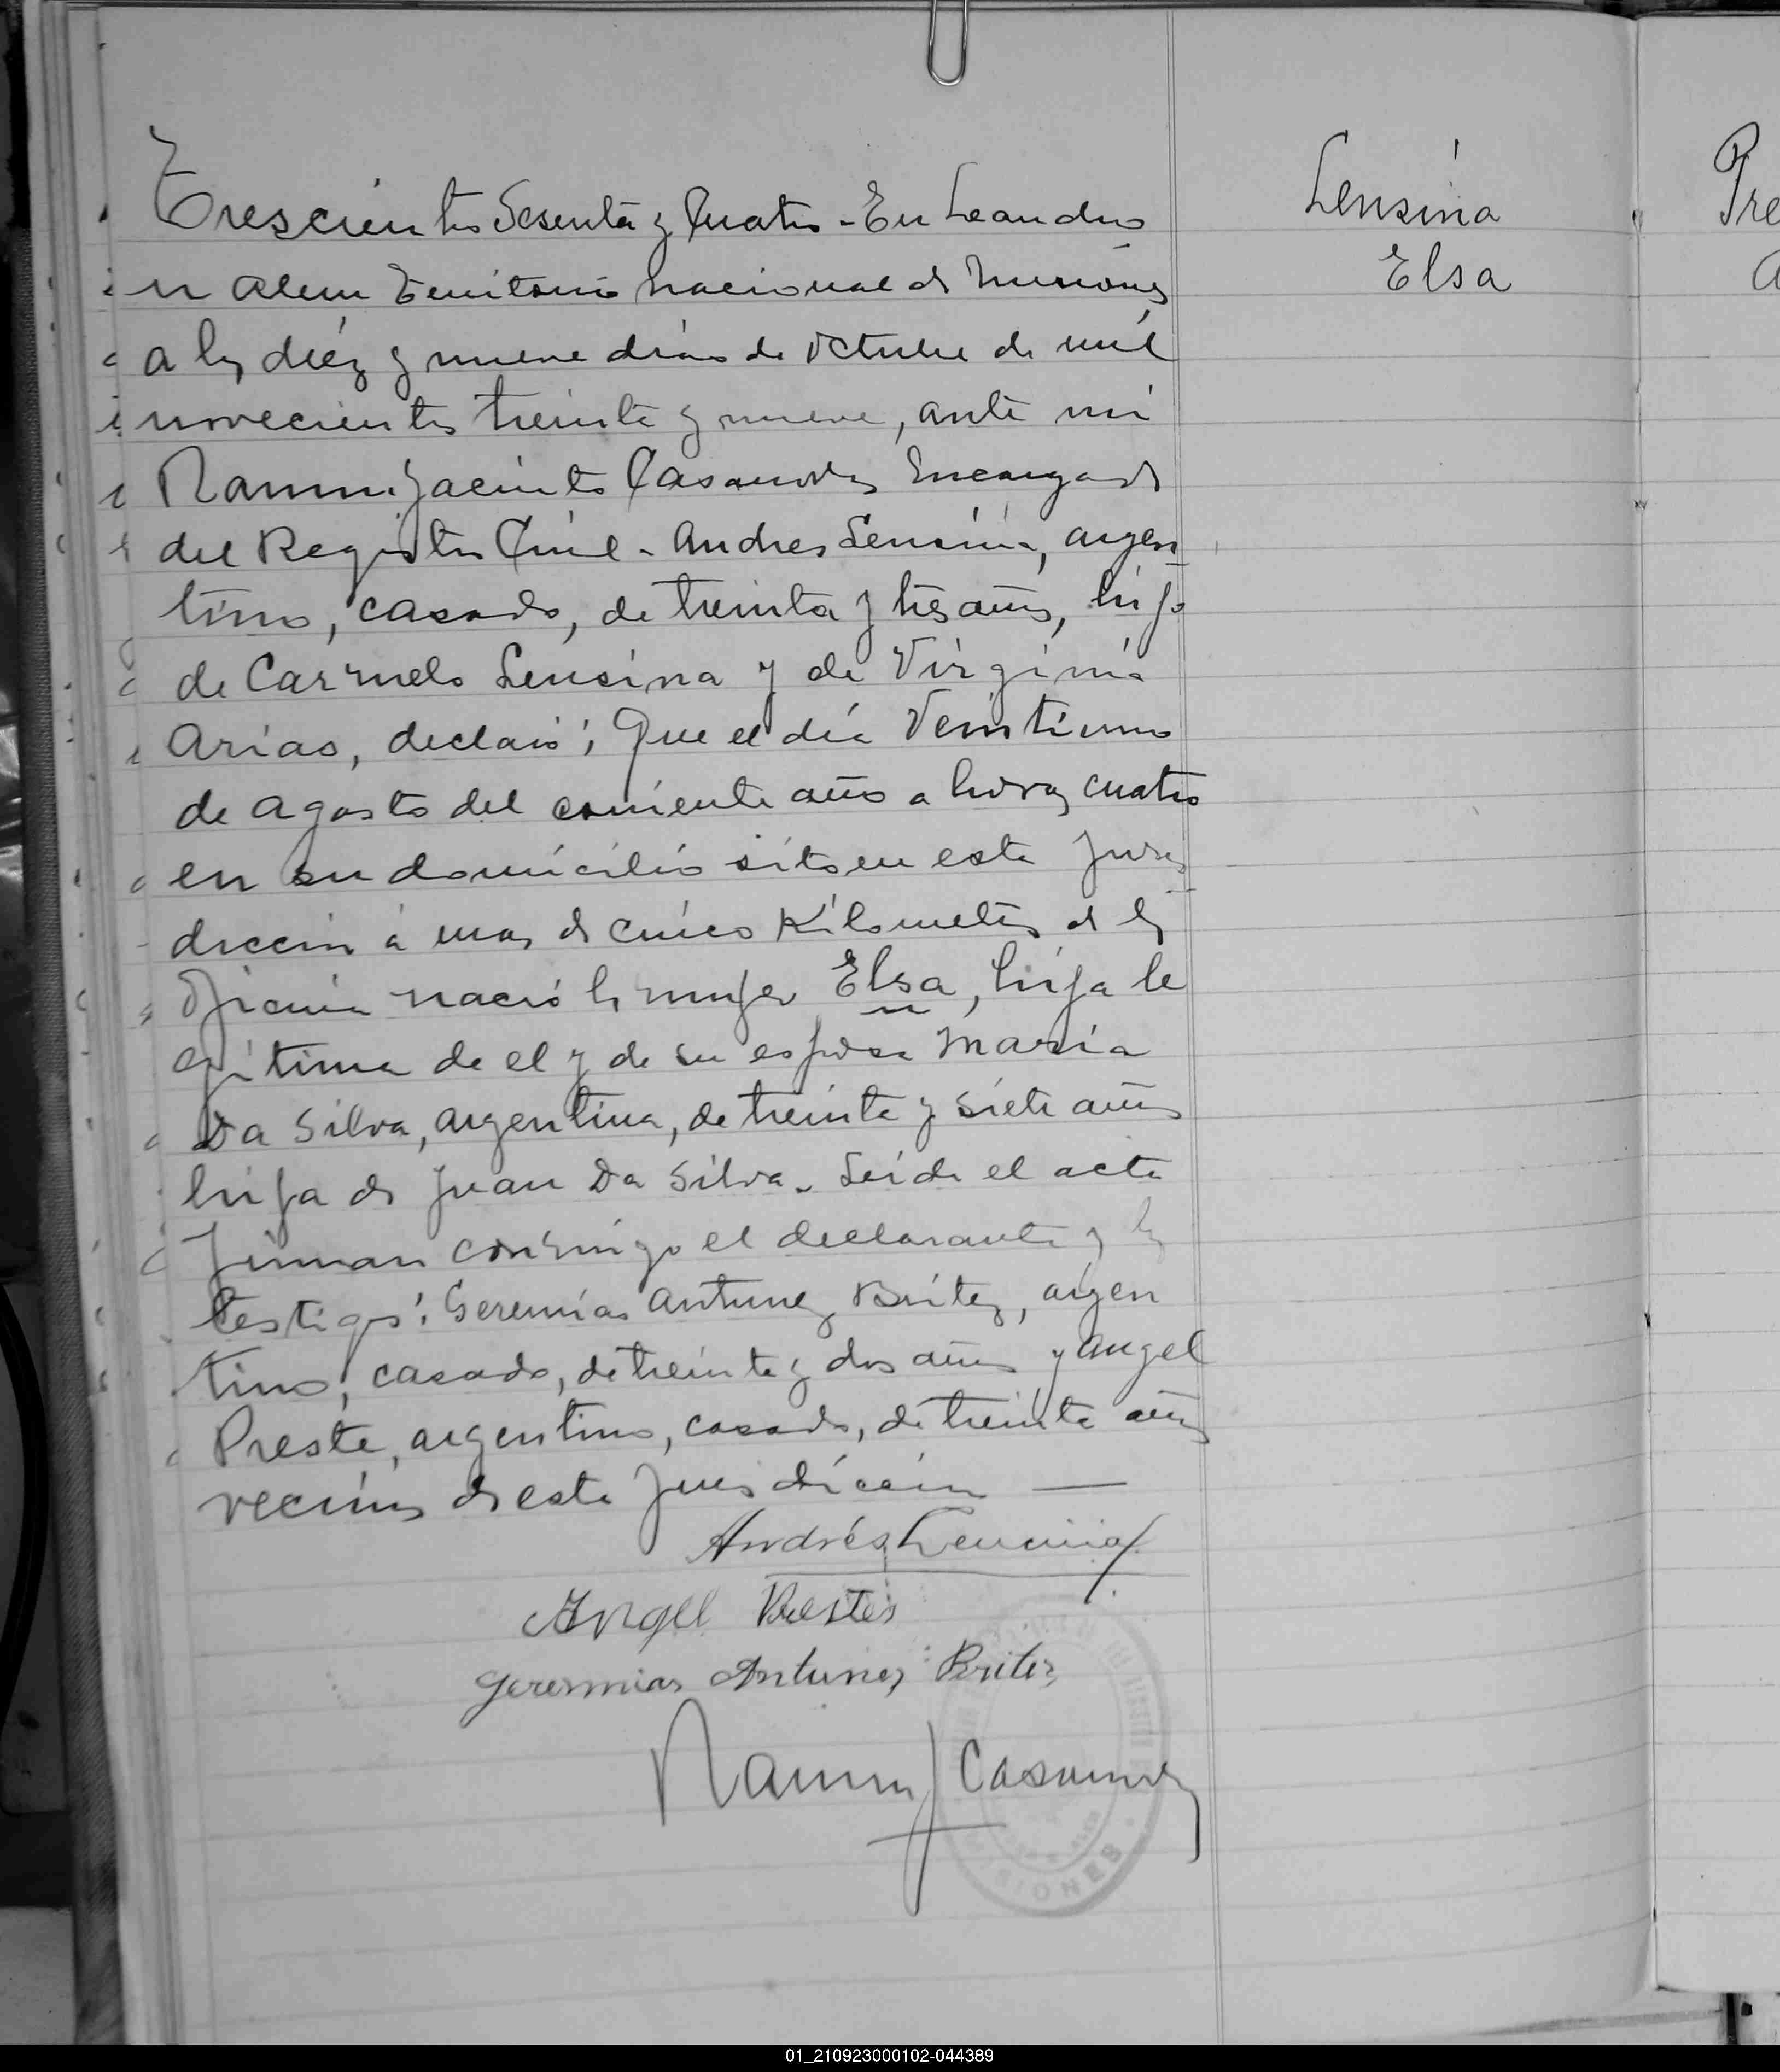 Trescientos Sesenta y Cuatro - En Leandro
N Alem Territorio Nacional de Misiones
a los diéz y nueve dias de Octubre de mil
novecientos treinta y nueve, ante mi
Ramon Jacinto Casanova Encargado
del Registro Civil - Andres Lensina, argen
tino, casado, de treinta y tres años, hijo
de Carmelo Lensina y de Virginia
Arias, declaró; Que el día Veintiuno
de Agosto del corriente año a horas cuatro
en su domicilio sito en esta Juris
dicción á mas de cinco Kilometros de la
Oficina nació la mujer Elsa, hija le
gitima de el y de su esposa María
Da Silva, argentina, de treinta y siete años
hija de Juan Da Silva. Leida el acta
firman conmigo el declarante y los
testigos: Geremias Antunez Britez, argen
tino, casado, de treinta y dos años y Angel
Preste, argentino, casado, de treinta años
vecinos de esta Jurisdicción
Andrés Lencina
Angel Prestes
Geremias Antunez Britez
Ramon J Casanova
MISIONES
Lensina
Elsa
Pre
01_210923000102-044389